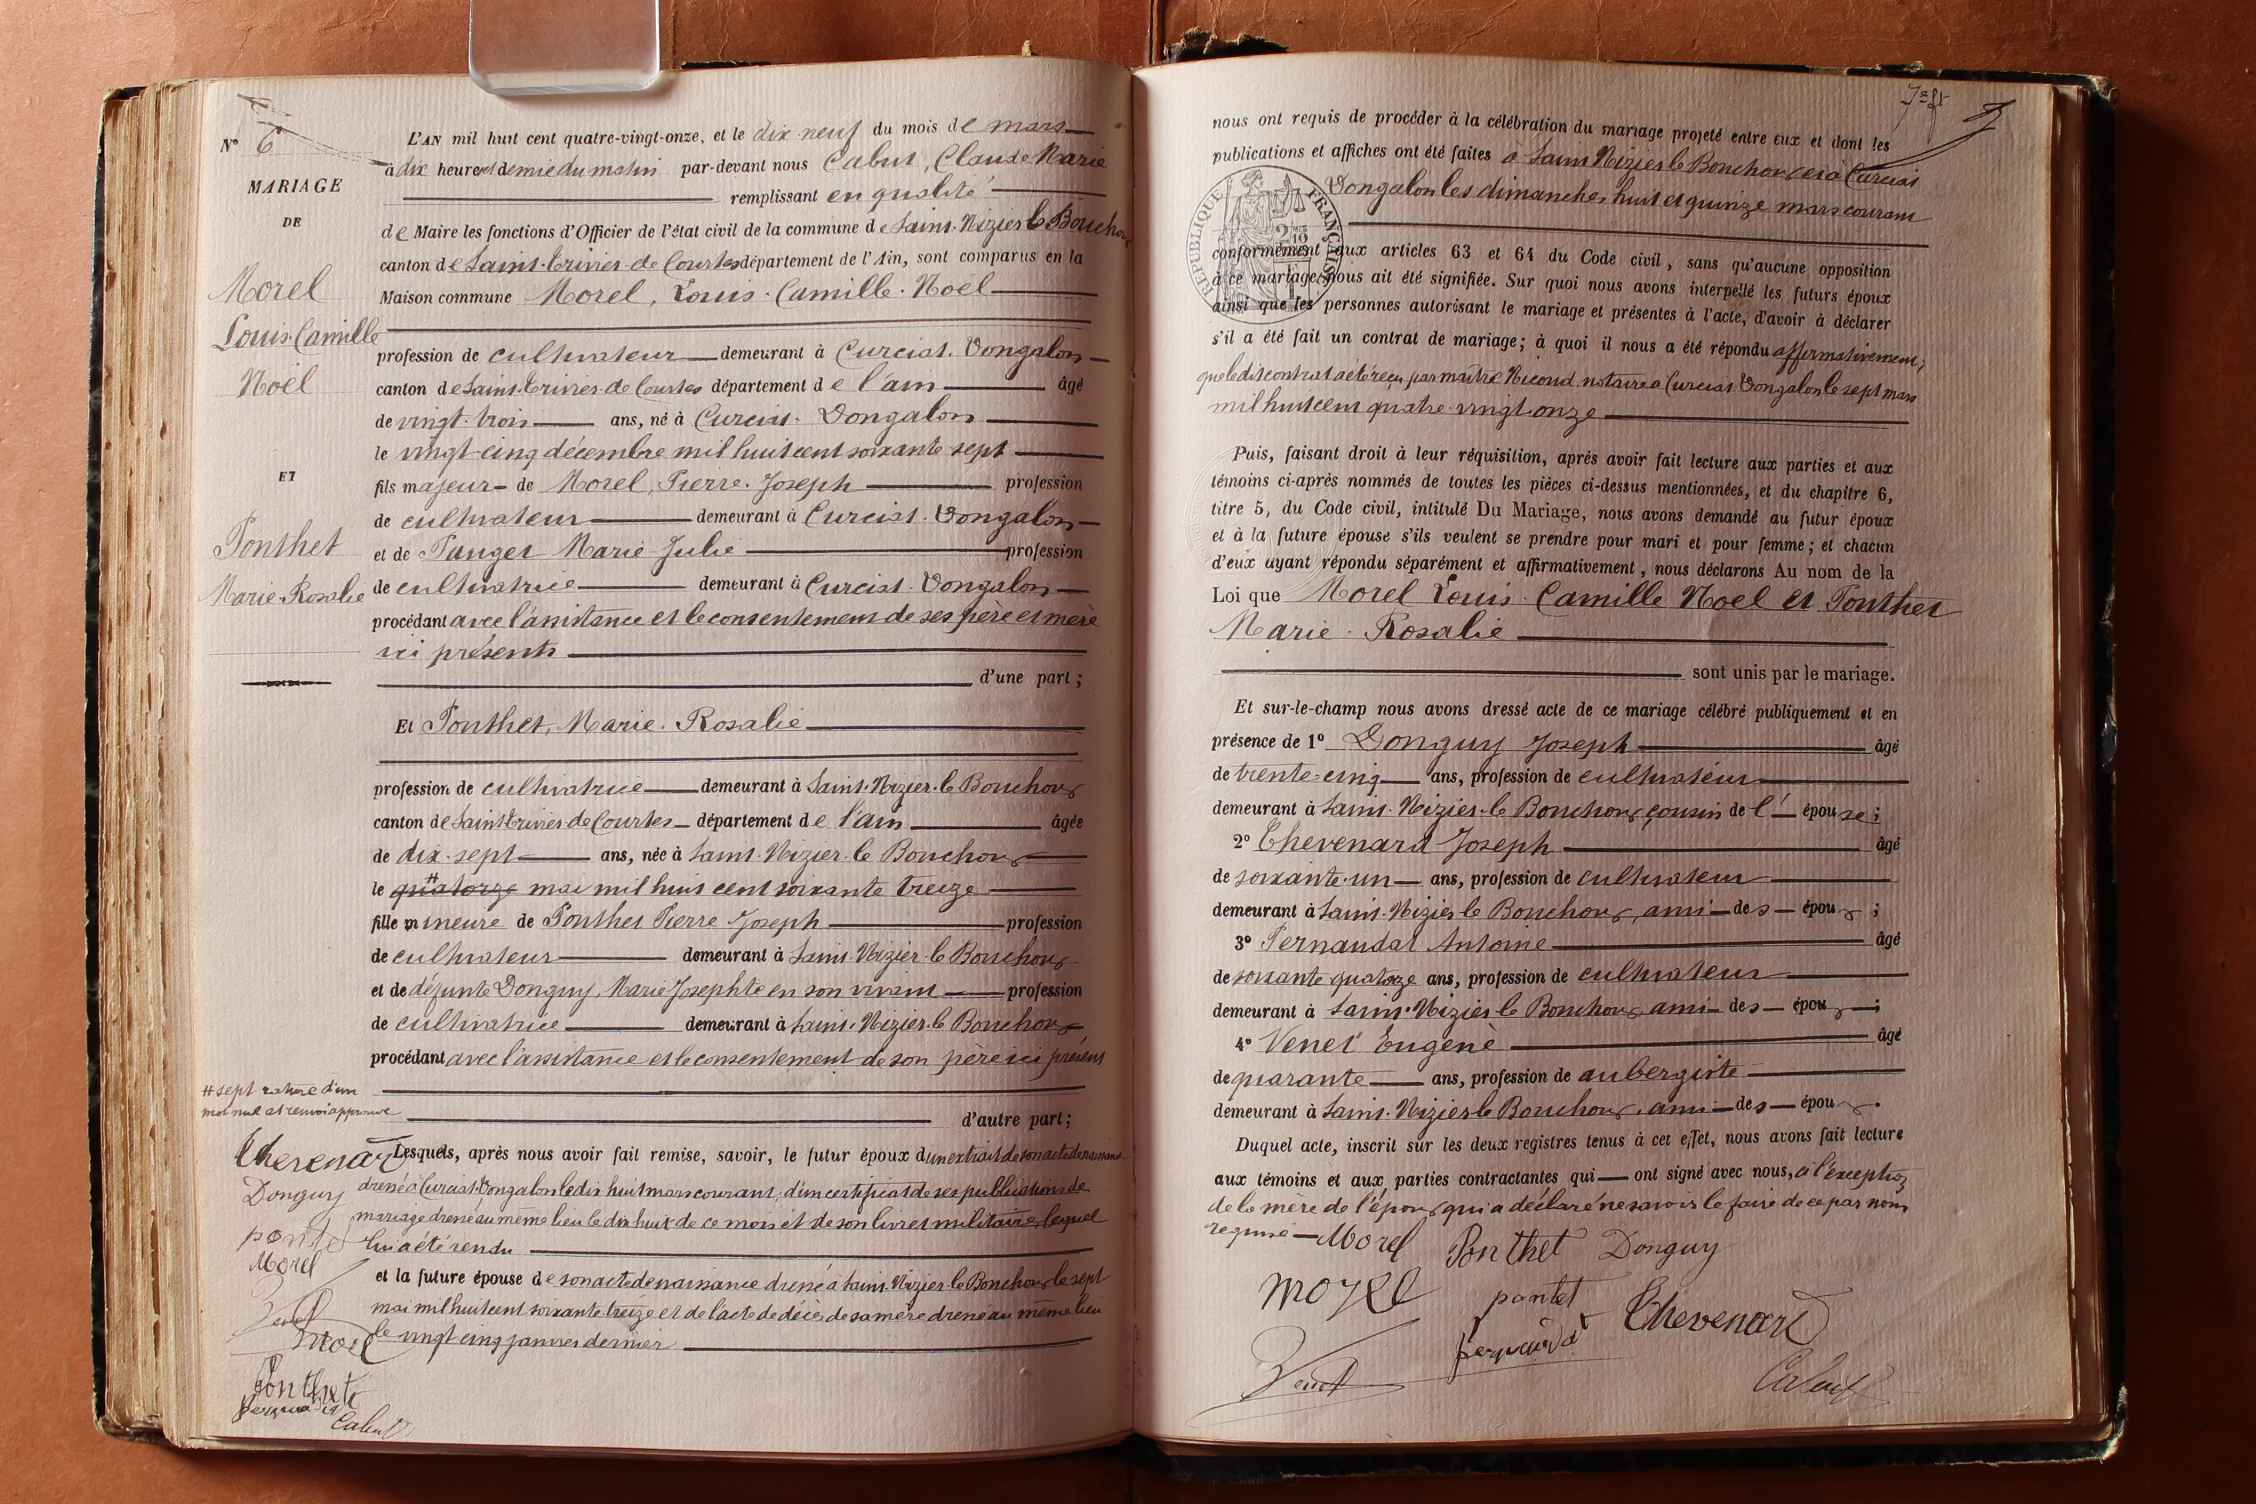 N° 6
MARIAGE
DE
Morel
Louis Camille
Noël
ET
Ponthet
Marie Rosalie
L'AN mil huit cent quatre-vingt-onze, et le dix neuf du mois de mars
à dix heures et demie du matin par-devant nous Cabut, Claude Marie
remplissant en qualité
de Maire les fonctions d'Officier de l'état civil de la commune de Saint-Nizier le Bouchoux
canton de Saint-Trivier-de Courtes département de l'Ain, sont comparus en la
Maison commune Morel, Louis-Camille-Noël
profession de cultivateur demeurant à Curciat-Dongalon
canton de Saint-Trivier-de Courtes département de l'ain âgé
de vingt-trois ans, né à Curciat-Dongalon
le vingt-cinq décembre mil huit cent soixante sept
fils majeur de Morel, Pierre-Joseph profession
de cultivateur demeurant à Curciat-Dongalon
et de Pauget Marie Julie profession
de cultivatrice demeurant à Curciat-Dongalon
procédant avec l'assistance et le consentement de ses père et mère
ici présents
d'une part ;
Et Ponthet, Marie-Rosalie
profession de cultivatrice demeurant à Saint-Nizier-le Bouchoux
canton de Saint-Trivier-de Courtes département de l'ain âgée
de dix-sept ans, née à Saint-Nizier-le Bouchoux
le quatorze # mai mil huit cent soixante treize
fille mineure de Ponthet Pierre Joseph profession
de cultivateur demeurant à Saint-Nizier-le Bouchoux
et de défunte Donguy, Marie Josephte en son vivant profession
de cultivatrice demeurant à Saint-Nizier-le Bouchoux
procédant avec l'assistance et le consentement de son père ici présent
# sept rature d'un
mot nul et renvoi approuvé
d'autre part ;
Lesquels, après nous avoir fait remise, savoir, le futur époux d'un extrait de son acte de naissance
dressé à Curciat-Dongalon le dix huit mars courant, d'un certificat de ses publications de
mariage dressé au même lieu le dix huit de ce mois et de son livret militaire, lequel
lui a été rendu
et la future épouse de son acte de naissance dressé à Saint-Nizier-le Bouchoux le sept
mai mil huit cent soixante treize et de l'acte de décès de sa mère dressé au même lieu
le vingt cinq janvier dernier
Thevenard
Donguy
pontet
Morel
Venet
morel
Ponthet
pernaudat
Cabut
7e ft
nous ont requis de procéder à la célébration du mariage projeté entre eux et dont les
publications et affiches ont été faites à Saint Nizier le Bouchoux et à Curciat
Dongalon les dimanches huit et quinze mars courant
RÉPUBLIQUE FRANÇAISE
conformément aux articles 63 et 64 du Code civil, sans qu'aucune opposition
à ce mariage nous ait été signifiée. Sur quoi nous avons interpellé les futurs époux
ainsi que les personnes autorisant le mariage et présentes à l'acte, d'avoir à déclarer
s'il a été fait un contrat de mariage ; à quoi il nous a été répondu affirmativement,
que le dit contrat a été reçu par maître Nicoud notaire à Curciat Dongalon le sept mars
mil huit cent quatre-vingt-onze
Puis, faisant droit à leur réquisition, après avoir fait lecture aux parties et aux
témoins ci-après nommés de toutes les pièces ci-dessus mentionnées, et du chapitre 6,
titre 5, du Code civil, intitulé Du Mariage, nous avons demandé au futur époux
et à la future épouse s'ils veulent se prendre pour mari et pour femme ; et chacun
d'eux ayant répondu séparément et affirmativement, nous déclarons Au nom de la
Loi que Morel Louis-Camille Noël et Ponthet
Marie-Rosalie
sont unis par le mariage.
Et sur-le-champ nous avons dressé acte de ce mariage célébré publiquement et en
présence de 1° Donguy Joseph âgé
de trente-cinq ans, profession de cultivateur
demeurant à Saint-Nizier-le Bouchoux, cousin de l'épouse ;
2° Thevenard Joseph âgé
de soixante-un ans, profession de cultivateur
demeurant à Saint-Nizier le Bouchoux, ami des époux ;
3° Pernaudat Antoine âgé
de soixante quatorze ans, profession de cultivateur
demeurant à Saint-Nizier le Bouchoux, ami des époux ;
4° Venet Eugène âgé
de quarante ans, profession de aubergiste
demeurant à Saint-Nizier le Bouchoux, ami des époux.
Duquel acte, inscrit sur les deux registres tenus à cet effet, nous avons fait lecture
aux témoins et aux parties contractantes qui ont signé avec nous, à l'exception
de la mère de l'époux qui a déclaré ne savoir le faire de ce par nous
requise Morel Ponthet Donguy
morel pontet Thevenard
Venet pernaudat
Cabut